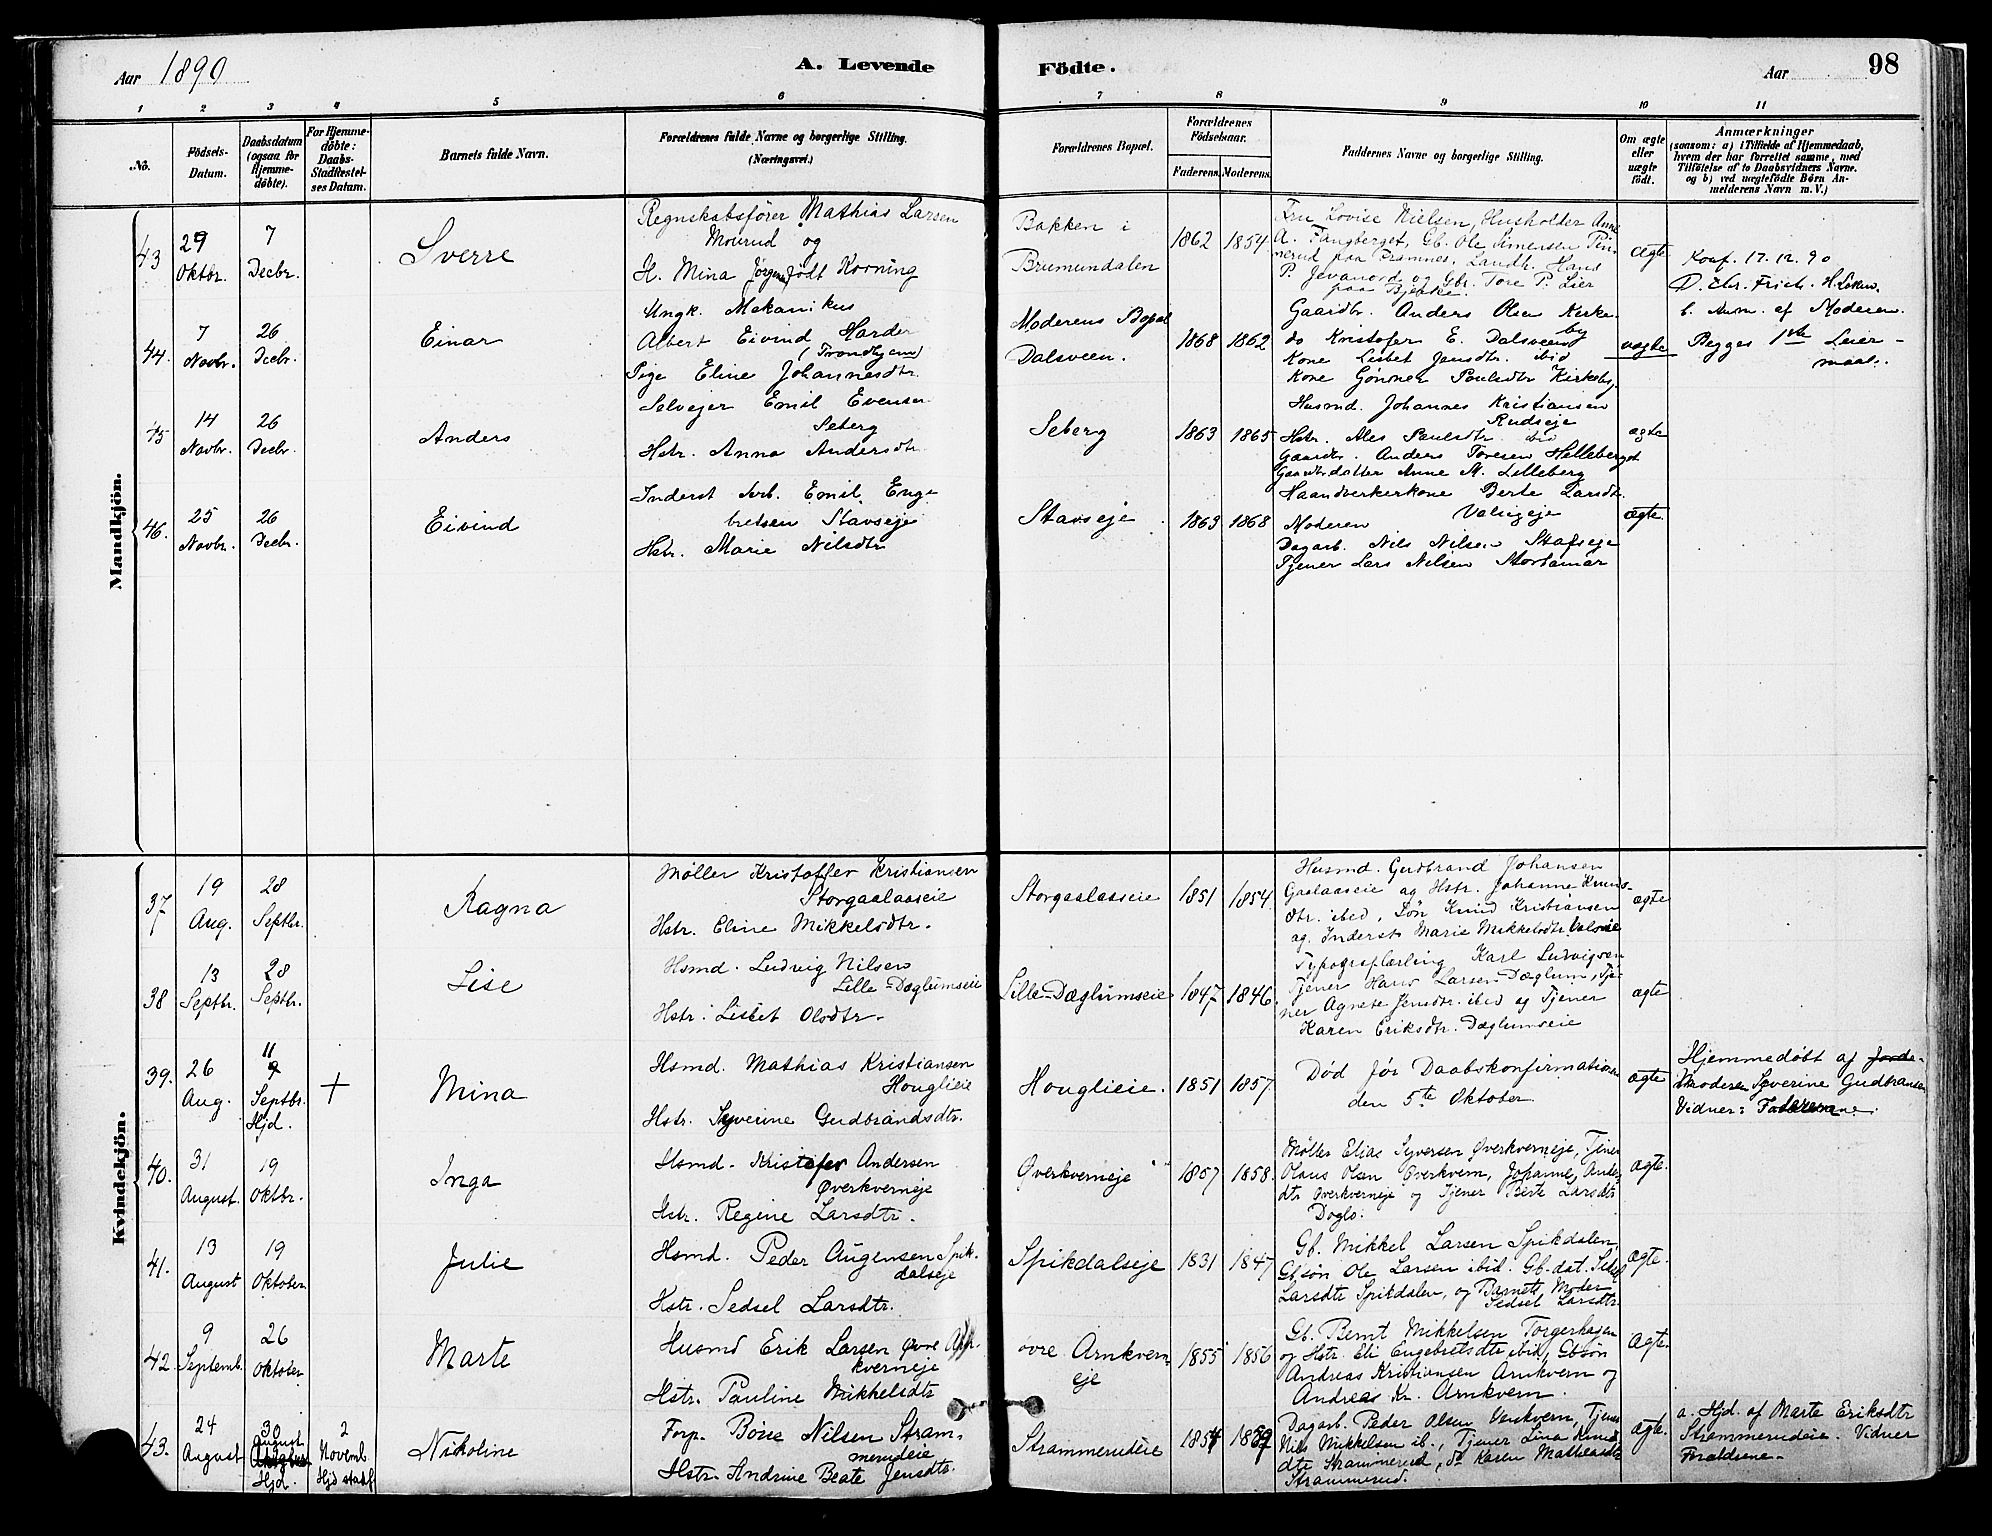 Aar 1890
A. Levende
Födte.
Aar
98
1 2 3 4 5 6 7 8 9 10 11
No.
Födsels-Datum.
Daabsdatum (ogsaa for Hjemmedøbte).
For Hjemmedöbte: Daabs-Stadfæstelses Datum.
Barnets fulde Navn.
Forældrenes fulde Navne og borgerlige Stilling. (Næringsvei.)
Forældrenes Bopæl.
Forældrenes Födselsaar.
Faderens. Moderens.
Faddernes Navne og borgerlige Stilling.
Om ægte eller uægte födt.
Anmærkninger
(saasom: a) i Tilfælde af Hjemmedaab, hvem der har forrettet samme, med Tilföielse af to Daabsvidners Navne. og b) ved uægtefödte Börn Anmelderens Navn m. V.)
Mandkjön.
43
29 Oktbr.
7 Decbr.
Sverre
Regnskabsfører Mathias Larsen
Mourud og
H. Mina Jørgine født Korning
Bakken i
Brumundalen
1862 1854
Fru Lovise Nielsen, Husholder Anne
A. Fangberget, Gb. Ole Simensen
paa Landh. Hans
P. Jevanord og Gbr. Tore P. Lier
paa Bjerke.
ægte
Konf. 17.12.90
44.
7 Novbr.
26 Decbr.
Einar
Ungk. Mekanikus
Albert Eivind Harder
(Trondhjem)
Pige Eline Johannesdtr.
Moderens Bopæl
Dalsveen.
1868 1862
Gaardbr. Anders Olsen Kirkeby
do Kristofer E. Dalsveen
Kone Lisbet Jensdtr. ibid
Kone Gønner Paulsdtr Kirkeby.
uægte
b. Anm. af Moderen.
Begges 1ste Leiermaal.
45
14 Novbr.
26 Decbr.
Anders
Selvejer Emil Evensen
Seberg
Hstr. Anna Andersdtr.
Seberg
1863 1865
Husmd. Johannes Kristiansen
Rudseje
Hstr. Ales Paulsdtr. ibid
Gaardbr. Anders Toresen Helleberget
Gaardbrdatter Anne M. Lilleberg
ægte
46.
25 Novbr.
26 Decbr.
Eivind
Inderst Arb. Emil Enge
bretsen Stavseje
Hstr. Marie Nilsdtr
Stavseje
1863 1868
Haandverkerkone Berte Larsdtr.
Moderen
Dagarb. Nils Nilsen Stafseje
Tjener Lars Nilsen Storhamar
ægte.
Kvindekjön.
37
19 Aug.
28 Septbr.
Ragna
Møller Kristoffer Kristiansen
Storgaalaaseie
Hstr. Eline Mikkelsdtr.
Storgaalaaseie
1851 1854
Husmd. Gudbrand Johansen
Gaalaaseie og Hstr. Johanne Knuds-
dtr. ibed, Søn Knud Kristiansen
og Inderst Marie Mikkelsdtr
ægte
38
13 Septbr.
28 Septbr.
Lise
Hsmd. Ludvig Nilsen
Lille-Dæglumseie
Hstr. Lisbet Olsdtr.
Lille-Dæglumseie
1847 1846
Typograflærling Karl Ludvigsen
Tjener Hans Larsen Dæglum, Tje-
ner Agnete Jensdtr. ibed og Tjener
Karen Eriksdtr. Dæglumseie
ægte
39.
26 Aug.
11 Septbr. Hjd.
+
Mina
Hsmd. Mathias Kristiansen
Houglieie
Hstr. Syverine Gudbrandsdtr.
Houglieie.
1851 1857
Død før Daabskonfirmationen
den 5te Oktober
ægte
Hjemmedøbt af Jorde-
moderen Syverine Gudbransen
Vidner: Faddererne.
40.
31 August.
19 Oktbr.
Inga
Hsmd. Kristofer Andersen
Øverkverneje
Hstr. Regine Larsdtr.
Øverkverneje
1857 1858.
Møller Elias Syversen Øverkverneje, Tjener
Olaus Olsen Øverkvern, Johanne Anders
dtr Øverkverneje og Tjener Berte Larsdtr
Doglo.
ægte.
41.
13 August
19 Oktober
Julie
Hsmd. Peder Augensen Spik-
dalseje
Hstr. Sedsel Larsdtr.
Spikdalseje
1831 1847
Gb. Mikkel Larsen Spikdalen,
Gbsøn Ole Larsen ibid. Gb-dat. Sedsel
Larsdtr Spikdalen, og Barnets Moder
Sedsel Larsdtr.
ægte.
42.
9 Septemb.
26 Oktober
Marte
Husmd Erik Larsen øvre Arn-
kverneje
Hstr. Pauline Mikkelsdtr
øvre Arnkvern
eje
1855 1856
Gb. Bernt Mikkelsen Torgerhagen
og Hstr. Eli Engebretsdtr ibid, Gbsøn
Andreas Kristiansen Arnkvern og
Andreas Kr. Arnkvern.
ægte.
43.
24 August
30 August Hjd.
2 Novemb. Hjd stadf
Nikoline
Forp. Bøne Nilsen Stram-
merudeie
Hstr. Andrine Beate Jensdtr.
Strammerudeie
1854 1859
Dagarb. Peder Olsen Tjener
Nils Mikkelsen ib., Tjener Lina Knuds
dtr Strammerud, do Karen Mathea
Strammerud.
ægte.
a. Hjd. af Marte Eriksdtr
Strammerudeie. Vidner
Forældrene.